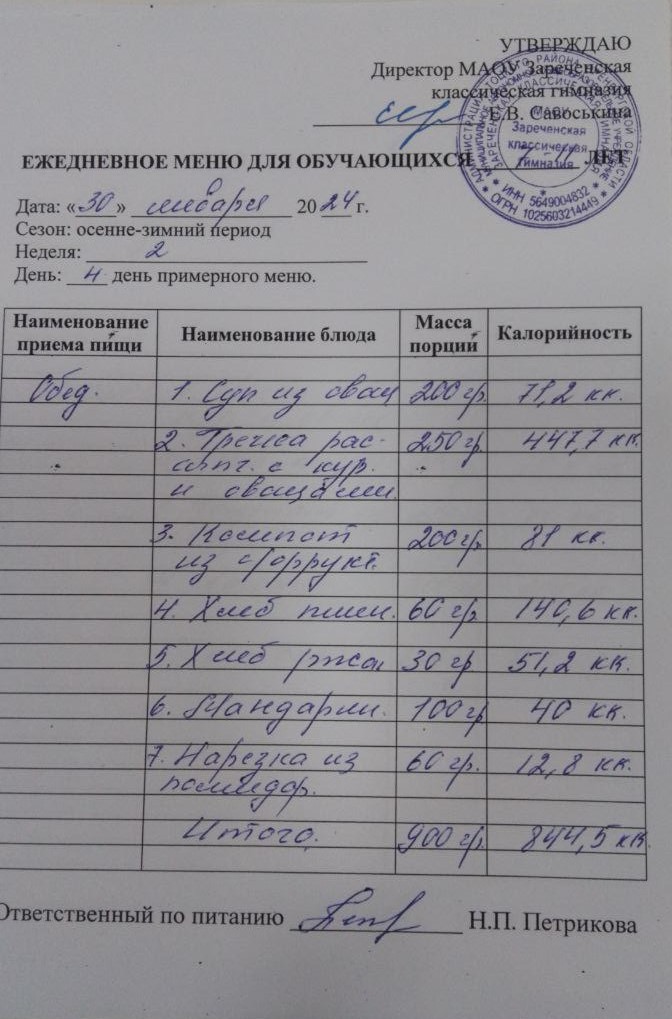 УТВЕРЖДАЮ
Директор МАОУ Зареченская
классическая гимназия
Е.В. Савоськина
ЕЖЕДНЕВНОЕ МЕНЮ ДЛЯ ОБУЧАЮЩИХСЯ ЛЕТ
МАОУ
Зареченская
классическая
гимназия
* ИНН 5649004832 *
* ОГРН 1025603214449 *
Дата: «30» января 2024 г.
Сезон: осенне-зимний период
Неделя: 2
День: 4 день примерного меню.
Наименование приема пищи Наименование блюда Масса порции Калорийность
Обед. 1. Суп из овощ 200 гр. 71,2 кк.
2. Гречка рас- 250 гр. 447,7 кк.
с кур.
и овощами.
3. Компот 200 гр. 81 кк.
из
4. Хлеб пшен. 60 гр. 140,6 кк.
5. Хлеб ржан 30 гр 51,2 кк.
6. Мандарин. 100 гр 40 кк.
7. Нарезка из 60 гр. 12,8 кк.
помидор.
Итого. 900 гр. 844,5 кк
Ответственный по питанию Н.П. Петрикова